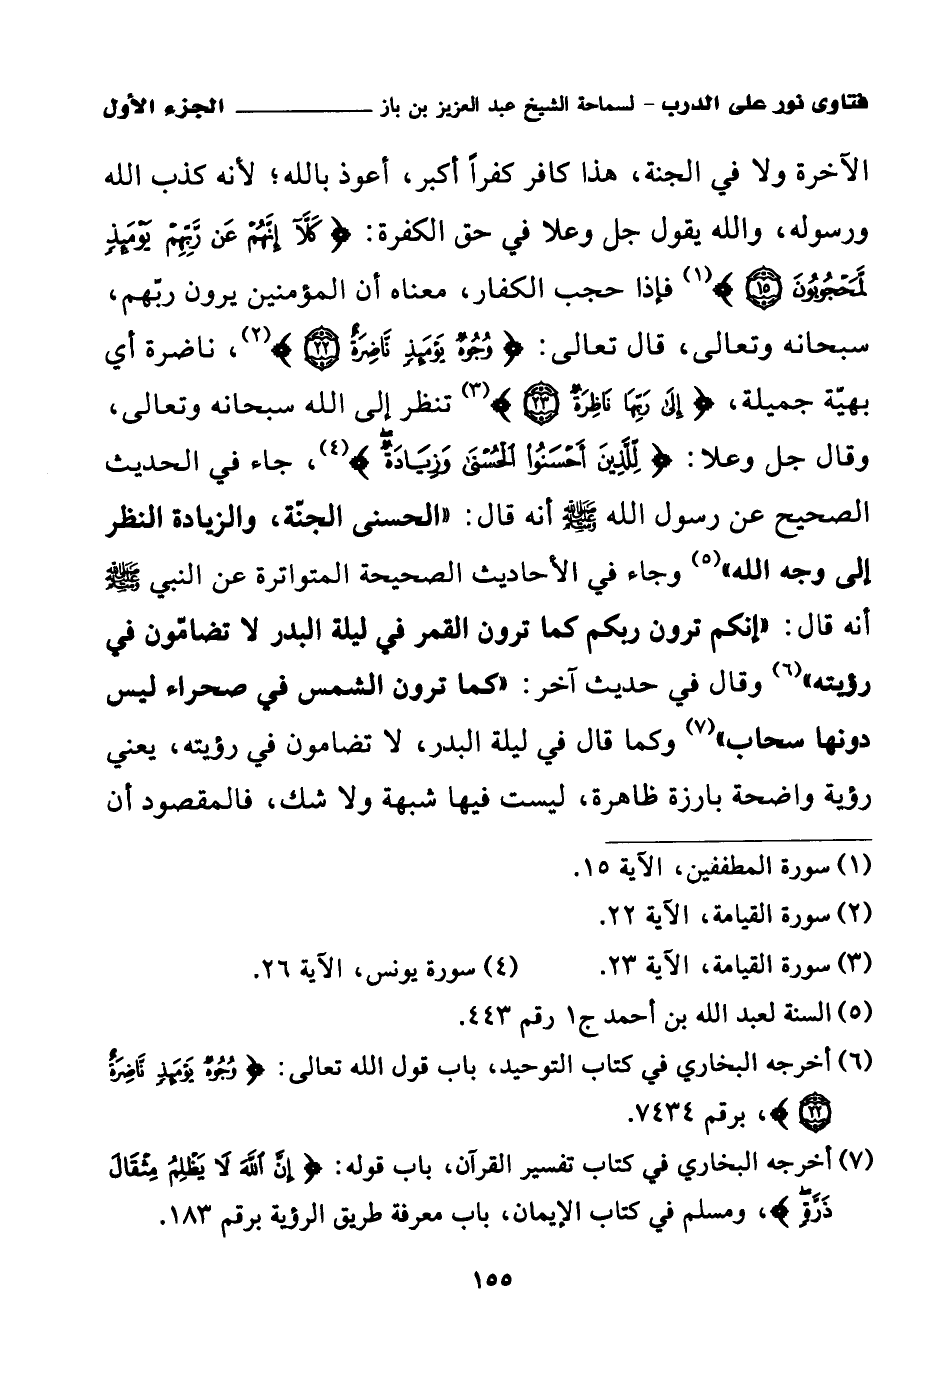 فتاوى نور على الدرب - لسماحة الشيخ عبد العزيز بن باز ــــــــــــ الجزء الأول
الآخرة ولا في الجنة، هذا كافر كفراً أكبر، أعوذ بالله؛ لأنه كذب الله
ورسوله، والله يقول جل وعلا في حق الكفرة: ﴿ كَلَّآ إِنَّهُمْ عَن رَّبِّهِمْ يَوْمَئِذٍ
لَّمَحْجُوبُونَ ۝١٥ ﴾(١) فإذا حجب الكفار، معناه أن المؤمنين يرون ربّهم،
سبحانه وتعالى، قال تعالى: ﴿ وُجُوهٌ يَوْمَئِذٍ نَّاضِرَةٌ ۝٢٢ ﴾(٢)، ناضرة أي
بهيّة جميلة، ﴿ إِلَىٰ رَبِّهَا نَاظِرَةٌ ۝٢٣ ﴾(٣) تنظر إلى الله سبحانه وتعالى،
وقال جل وعلا: ﴿ لِّلَّذِينَ أَحْسَنُوا۟ ٱلْحُسْنَىٰ وَزِيَادَةٌ ۖ ﴾(٤)، جاء في الحديث
الصحيح عن رسول الله ﷺ أنه قال: «الحسنى الجنّة، والزيادة النظر
إلى وجه الله»(٥) وجاء في الأحاديث الصحيحة المتواترة عن النبي ﷺ
أنه قال: «إنكم ترون ربكم كما ترون القمر في ليلة البدر لا تضامّون في
رؤيته»(٦) وقال في حديث آخر: «كما ترون الشمس في صحراء ليس
دونها سحاب»(٧) وكما قال في ليلة البدر، لا تضامون في رؤيته، يعني
رؤية واضحة بارزة ظاهرة، ليست فيها شبهة ولا شك، فالمقصود أن
(١) سورة المطففين، الآية ١٥.
(٢) سورة القيامة، الآية ٢٢.
(٣) سورة القيامة، الآية ٢٣. (٤) سورة يونس، الآية ٢٦.
(٥) السنة لعبد الله بن أحمد ج١ رقم ٤٤٣.
(٦) أخرجه البخاري في كتاب التوحيد، باب قول الله تعالى: ﴿ وُجُوهٌ يَوْمَئِذٍ نَّاضِرَةٌ
۝٢٢ ﴾، برقم ٧٤٣٤.
(٧) أخرجه البخاري في كتاب تفسير القرآن، باب قوله: ﴿ إِنَّ ٱللَّهَ لَا يَظْلِمُ مِثْقَالَ
ذَرَّةٍ ۖ ﴾، ومسلم في كتاب الإيمان، باب معرفة طريق الرؤية برقم ١٨٣.
١٥٥